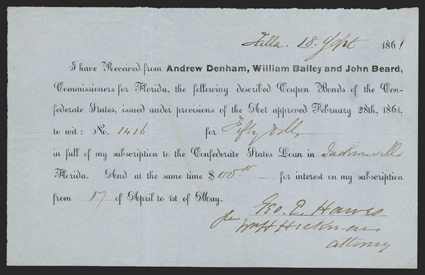 Talla. 18 Sept 1861
I have Received from Andrew Denham, William Bailey and John Beard,
Commissioners for Florida, the following described Coupon Bonds of the Con-
federate States, issued under provisions of the Act approved February 28th, 1861,
to wit: No. 1416 for Fifty Dolls
in full of my subscription to the Confederate States Loan in Jacksonville
Florida. And at the same time $00 for interest on my subscription
from 17 of April to 1st of May.
Geo. E. Hawes
Hickman
attorney